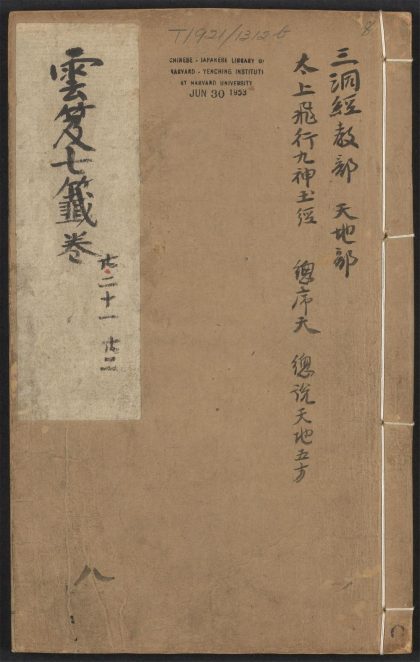 8
T1921/1312 b
CHINESE - JAPANESE LIBRARY OF
HARVARD - YENCHING INSTITUTE
AT HARVARD UNIVERSITY
JUN 30 1953
三洞經教部 天地部
太上飛行九神玉經 總序天 總說天地五方
雲笈七籤卷
廿 二十一 廿二
八